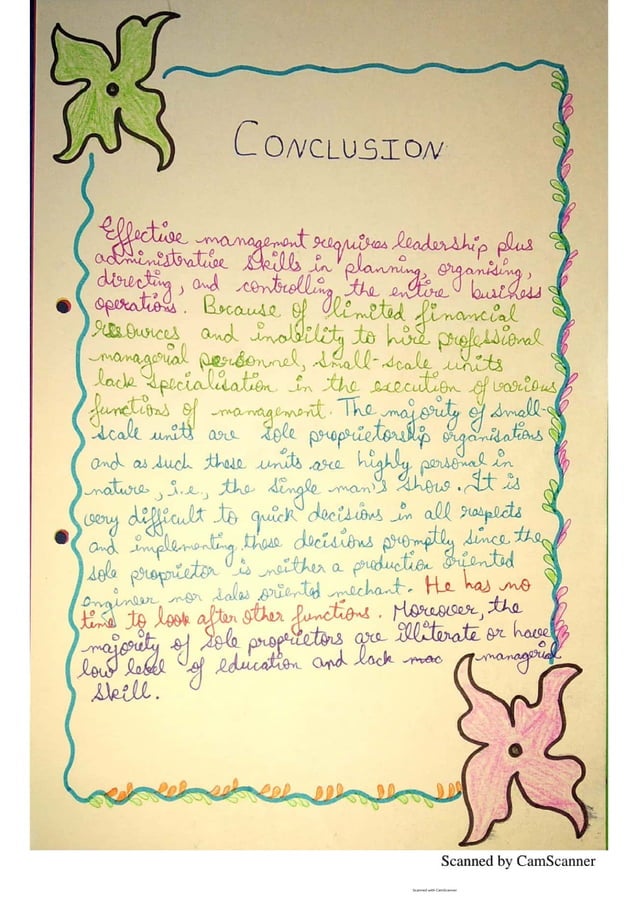 CONCLUSION
Effective management requires leadership plus
administrative skills in planning, organising,
directing, and controlling the entire business
operations. Because of limited financial
resources and inability to hire professional
managerial personnel, small-scale units
lack specialisation in the execution of various
functions of management. The majority of small-
scale units are sole proprietorship organisations
and as such these units are highly personal in
nature, i.e., the single man's show. It is
very difficult to quick decisions in all respects
and implementing these decisions promptly since the
sole proprietor is neither a production oriented
engineer nor sales oriented mechant. He has no
time to look after other functions. Moreover, the
majority of sole proprietors are illiterate or have
low level of education and lack mac managerial
skill.
Scanned by CamScanner
Scanned with CamScanner